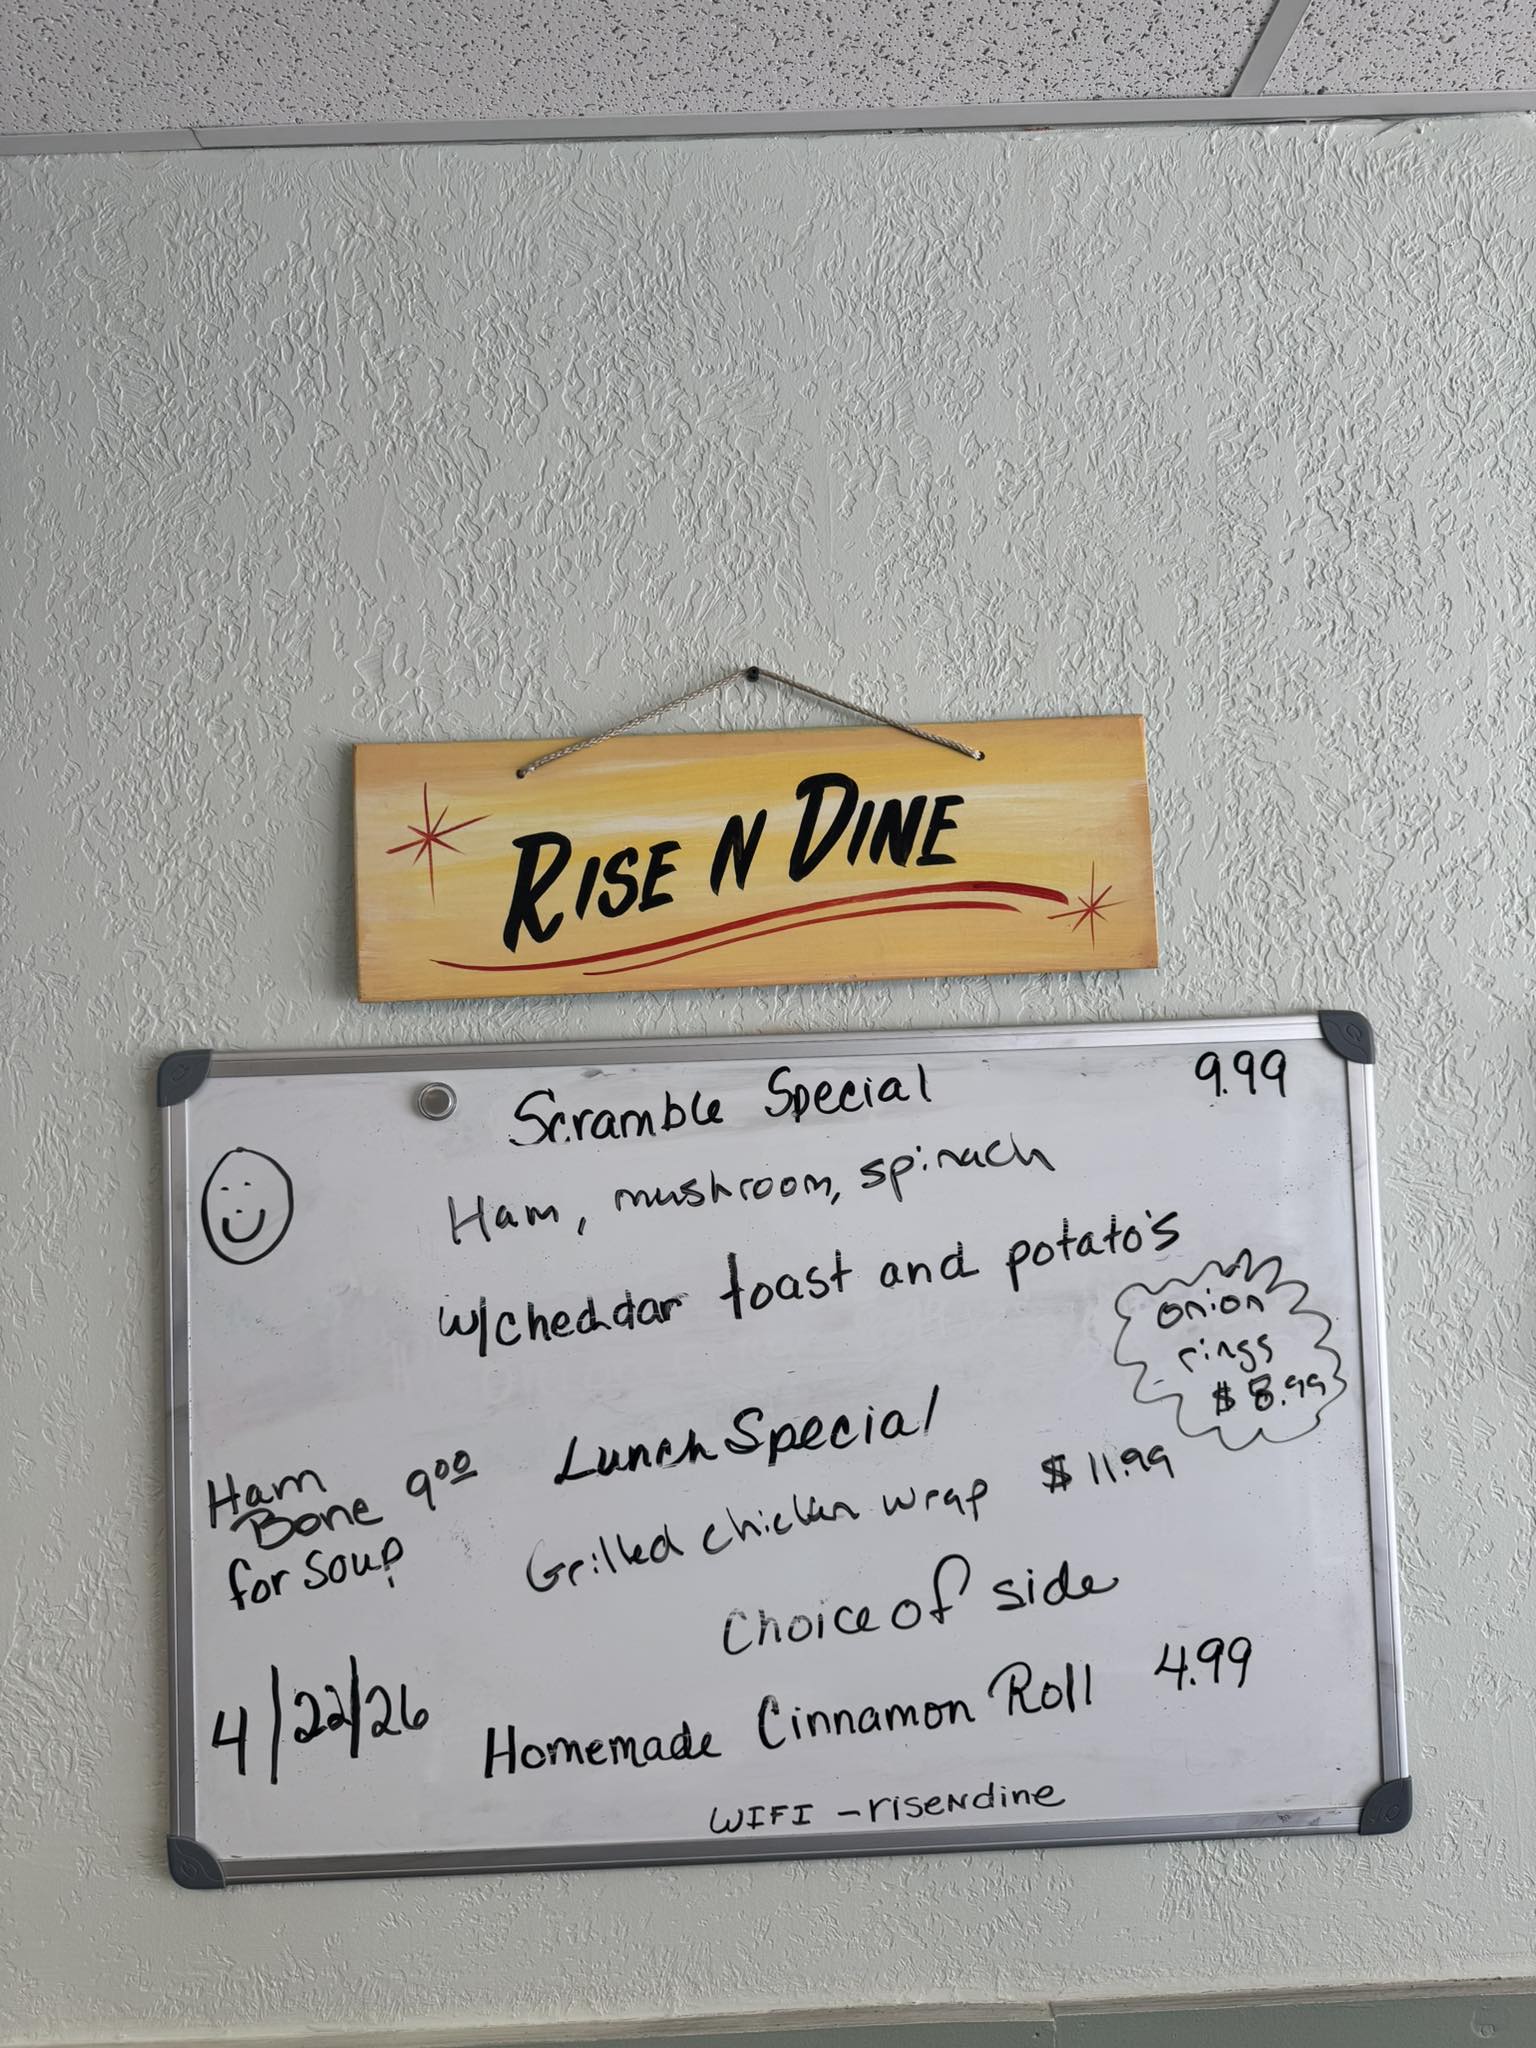 RISE N DINE
Scramble Special 9.99
Ham, mushroom, spinach
w/cheddar toast and potato's
onion
rings
$8.99
Lunch Special
Grilled chicken wrap $11.99
Choice of side
Ham
Bone 900
for soup
4/22/26
Homemade Cinnamon Roll 4.99
WIFI - riseNdine